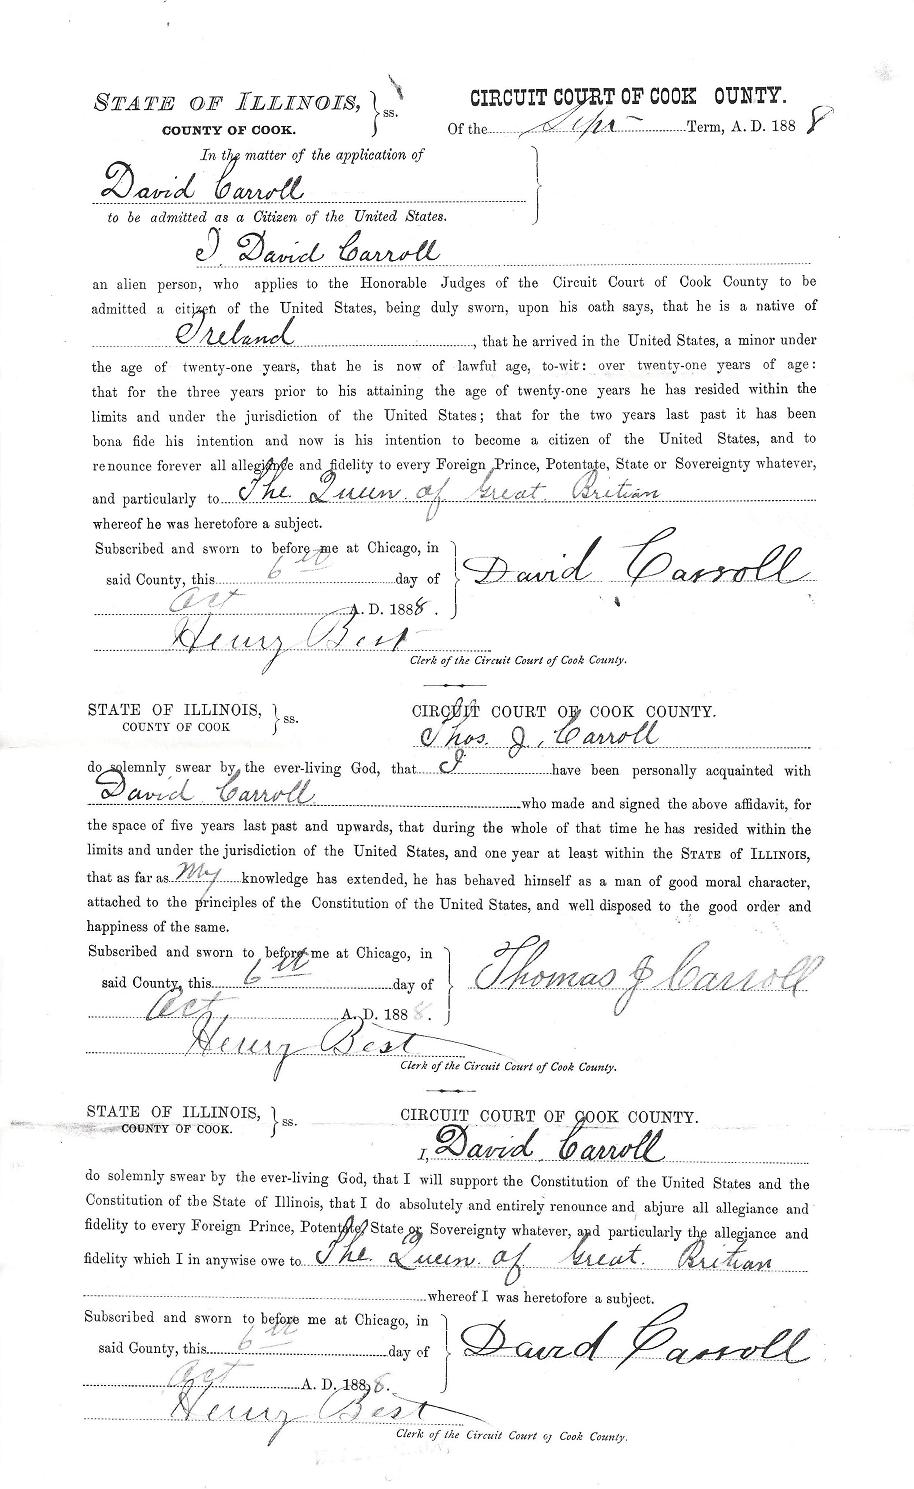 STATE OF ILLINOIS, } ss.
COUNTY OF COOK.
CIRCUIT COURT OF COOK OUNTY.
Of the Sept Term, A. D. 1888
In the matter of the application of
David Carroll
to be admitted as a Citizen of the United States.
I David Carroll
an alien person, who applies to the Honorable Judges of the Circuit Court of Cook County to be
admitted a citizen of the United States, being duly sworn, upon his oath says, that he is a native of
Ireland, that he arrived in the United States, a minor under
the age of twenty-one years, that he is now of lawful age, to-wit: over twenty-one years of age:
that for the three years prior to his attaining the age of twenty-one years he has resided within the
limits and under the jurisdiction of the United States; that for the two years last past it has been
bona fide his intention and now is his intention to become a citizen of the United States, and to
renounce forever all allegiance and fidelity to every Foreign Prince, Potentate, State or Sovereignty whatever,
and particularly to The Queen of Great Britian
whereof he was heretofore a subject.
Subscribed and sworn to before me at Chicago, in
said County, this 6th day of
Oct A. D. 1888.
David Carroll
Henry Best
Clerk of the Circuit Court of Cook County.
STATE OF ILLINOIS, } ss.
COUNTY OF COOK
CIRCUIT COURT OF COOK COUNTY.
Thos. J. Carroll
do solemnly swear by the ever-living God, that I have been personally acquainted with
David Carroll who made and signed the above affidavit, for
the space of five years last past and upwards, that during the whole of that time he has resided within the
limits and under the jurisdiction of the United States, and one year at least within the STATE OF ILLINOIS,
that as far as My knowledge has extended, he has behaved himself as a man of good moral character,
attached to the principles of the Constitution of the United States, and well disposed to the good order and
happiness of the same.
Subscribed and sworn to before me at Chicago, in
said County, this 6th day of
Oct A. D. 1888.
Thomas J Carroll
Henry Best
Clerk of the Circuit Court of Cook County.
STATE OF ILLINOIS, } ss.
COUNTY OF COOK.
CIRCUIT COURT OF COOK COUNTY.
I, David Carroll
do solemnly swear by the ever-living God, that I will support the Constitution of the United States and the
Constitution of the State of Illinois, that I do absolutely and entirely renounce and abjure all allegiance and
fidelity to every Foreign Prince, Potentate, State or Sovereignty whatever, and particularly the allegiance and
fidelity which I in anywise owe to The Queen of Great Britian
whereof I was heretofore a subject.
Subscribed and sworn to before me at Chicago, in
said County, this 6th day of
Oct A. D. 1888.
David Carroll
Henry Best
Clerk of the Circuit Court of Cook County.